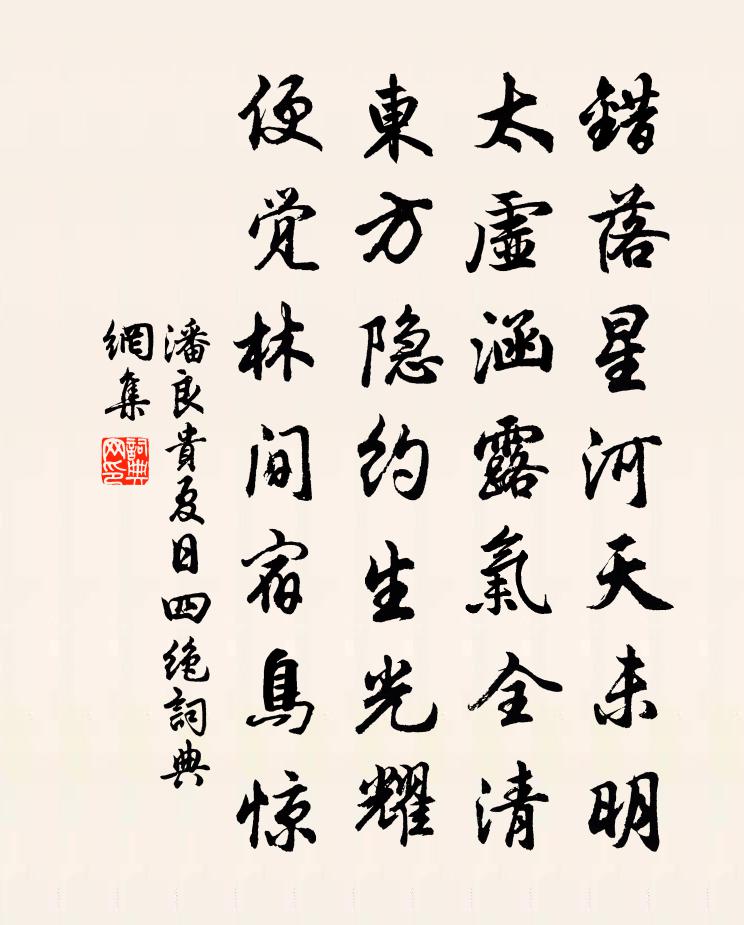 錯落星河天未明
太虛涵露氣全清
東方隐約生光耀
便觉林间宿鳥惊
潘良貴夏日四绝詞典
網集
詞典網印